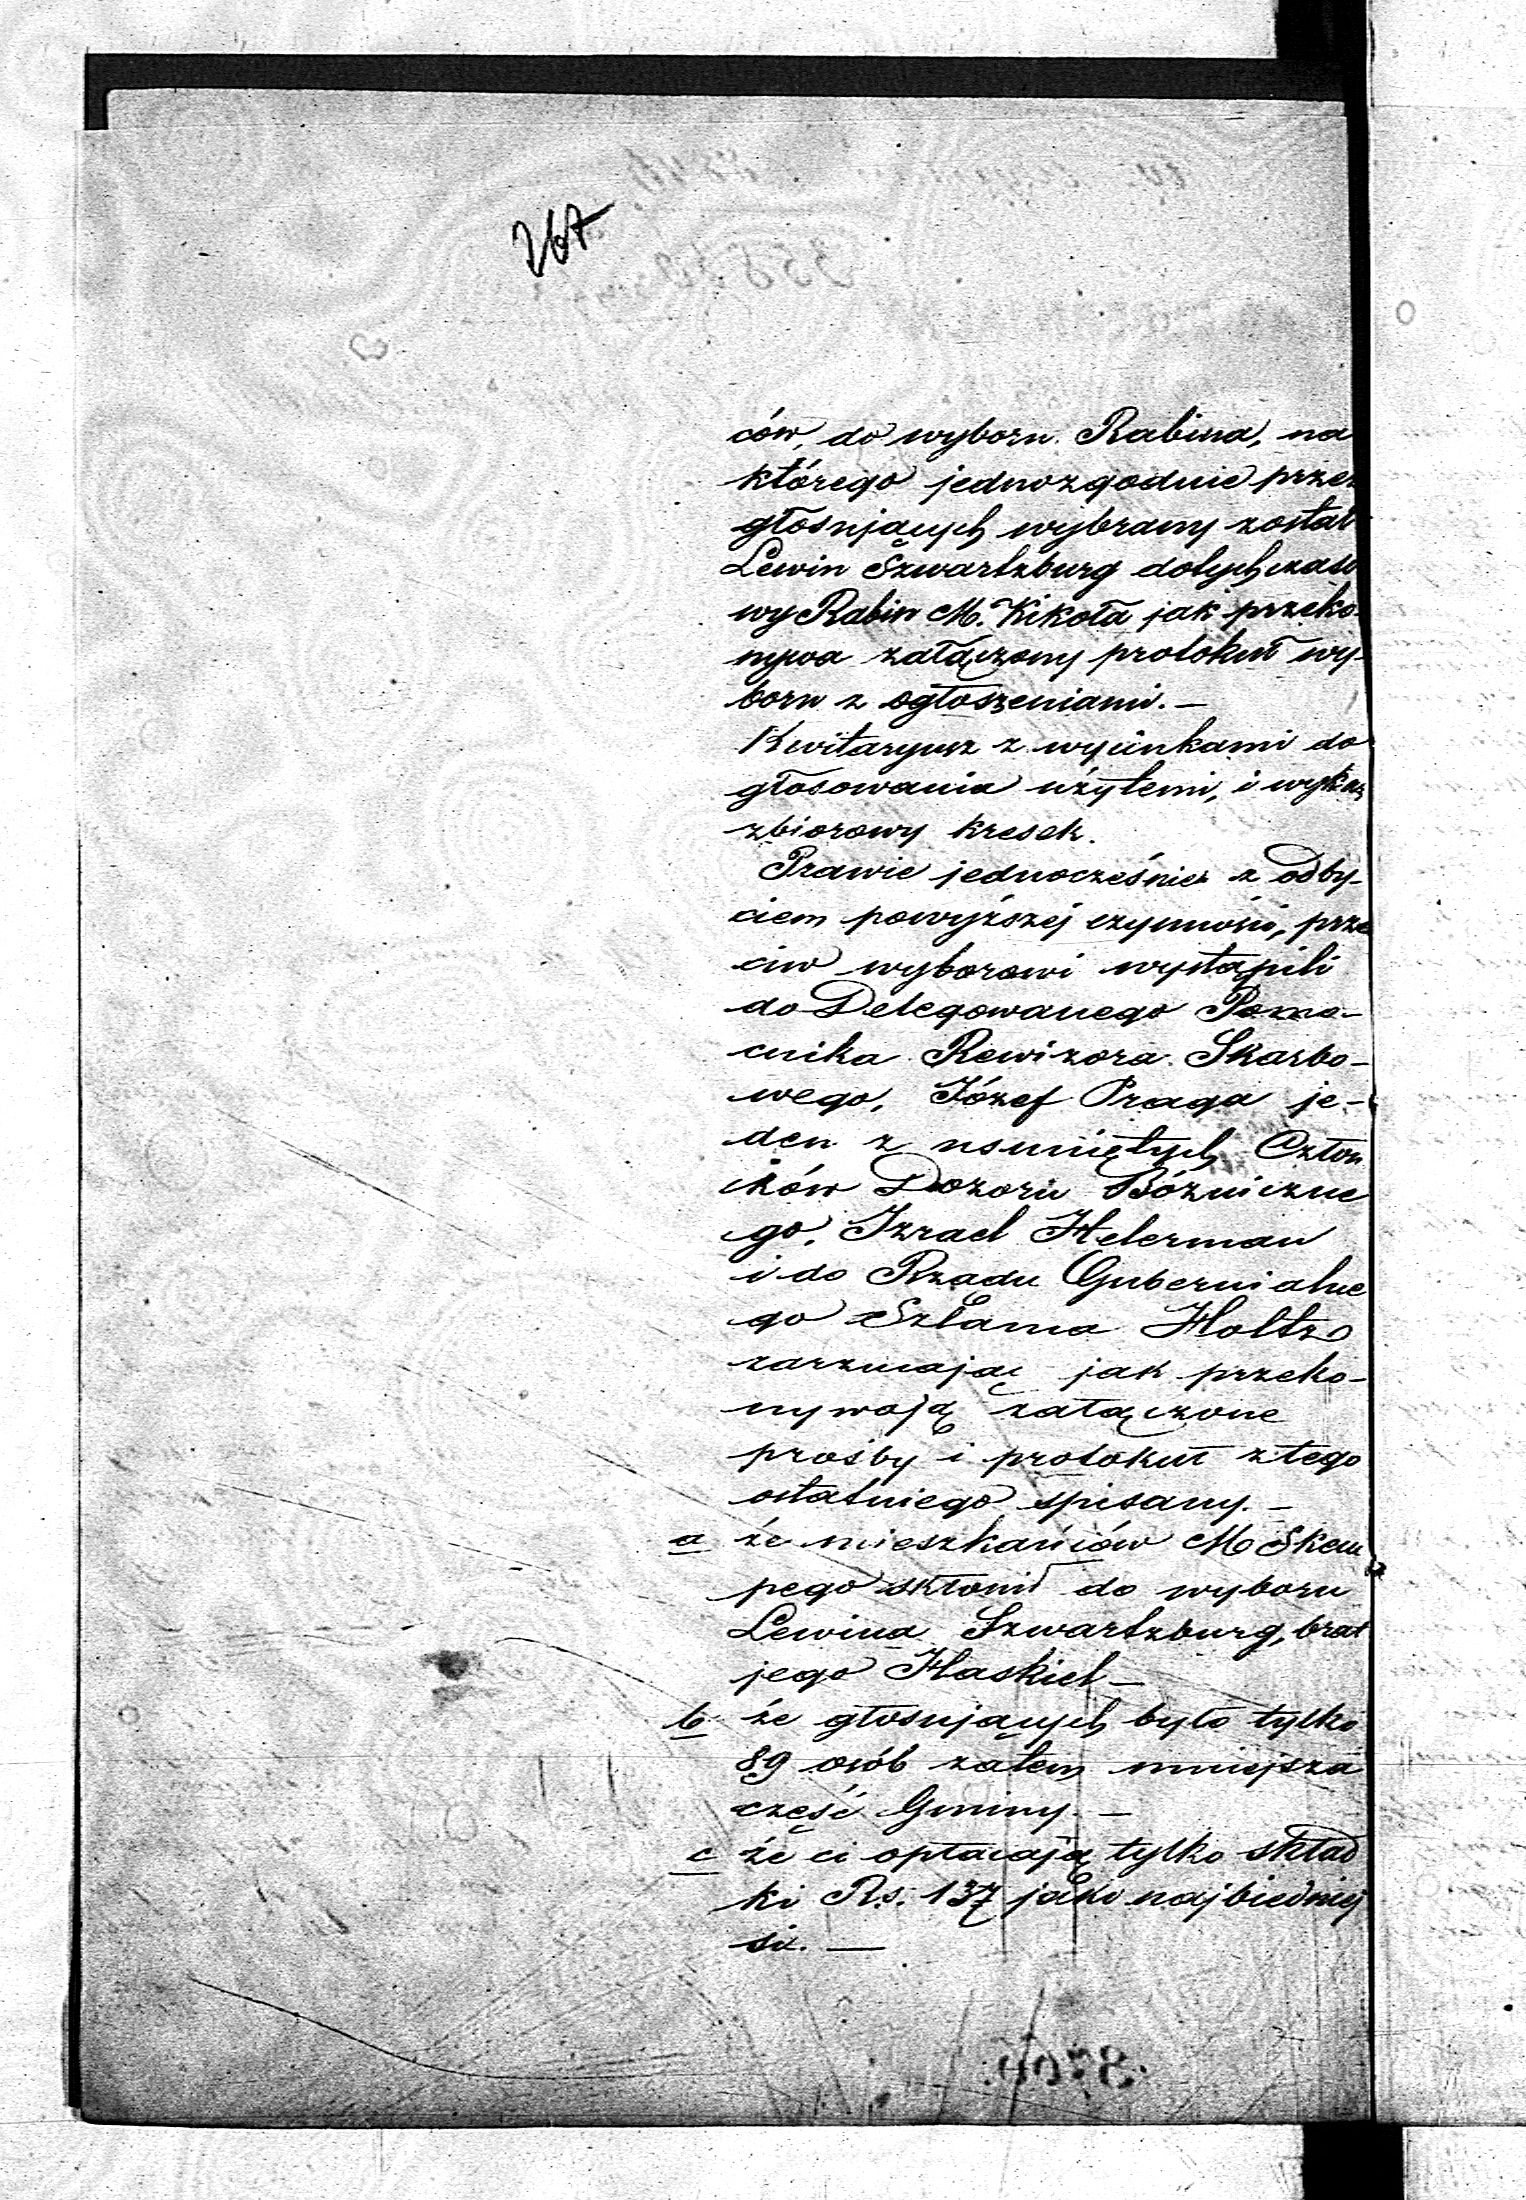 267
ców, do wyboru Rabina, na
którego jednozgodnie przez
głosujących wybrany został
Lewin Szwartzburg dotychczaso
wy Rabin M. Kikoła jak przeko-
nywa załączony protokuł wy-
boru z ogłoszeniami. —
Kwitaryusz z wycinkami do
głosowania użytemi, i wykaz
zbiorowy kresek.
Prawie jednocześnie z odby-
ciem powyższej czynności, prze
ciw wyborowi wystąpili
do Delegowanego Pomo-
cnika Rewizora Skarbo-
wego, Józef Praga je-
den z usuniętych Człon
ków Dozoru Bóżniczne
go, Izrael Helerman
i do Rządu Gubernialne
go Szlama Holtz
zarzucając jak przeko-
nywają załączone
prośby i protokuł z tego
ostatniego spisany. —
a że mieszkańców M Skem
pego skłonił do wyboru
Lewina Szwartzburg, brat
jego Haskiel —
b że głosujących było tylko
89 osób zatem mniejsza
część Gminy. —
c że ci opłacają tylko skład
ki Rs. 137 jako najbiedniej
si. —